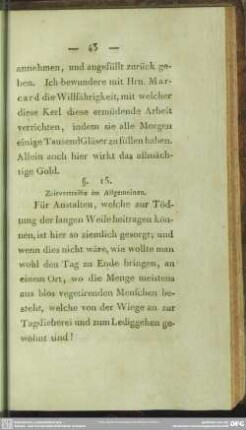 — 43 —
annehmen, und angefüllt zurück ge-
ben. Ich bewundere mit Hrn. Mar-
card die Willfährigkeit, mit welcher
diese Kerl diese ermüdende Arbeit
verrichten, indem sie alle Morgen
einige Tausend Gläser zu füllen haben.
Allein auch hier wirkt das allmäch-
tige Gold.
§. 15.
Zeitvertreibe im Allgemeinen.
Für Anstalten, welche zur Töd-
tung der langen Weile beitragen kön-
nen, ist hier so ziemlich gesorgt; und
wenn dies nicht wäre, wie wollte man
wohl den Tag zu Ende bringen, an
einem Ort, wo die Menge meistens
aus blos vegetirenden Menschen be-
steht, welche von der Wiege an zur
Tagdieberei und zum Lediggehen ge-
wöhnt sind!